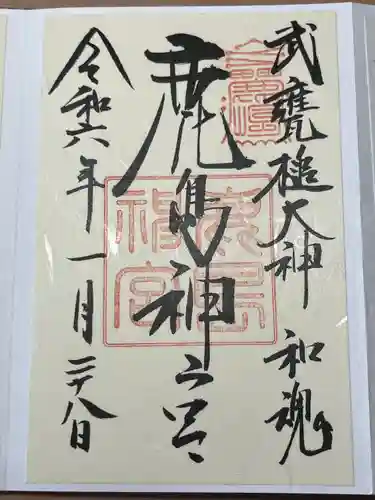 武甕槌大神 和魂
鹿島神宮
令和六年一月二十八日
鹿島
神宮